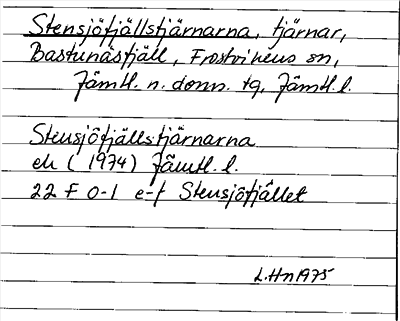 Stensjöfjällstjärnarna, tjärnar,
Bastunäsfjäll, Frostvikens sn,
Jämtl. n. doms. tg, Jämtl. l.
Stensjöfjällstjärnarna
ek (1974) Jämtl. l.
22 F 0-1 e-f Stensjöfjället
L. Hn 1975